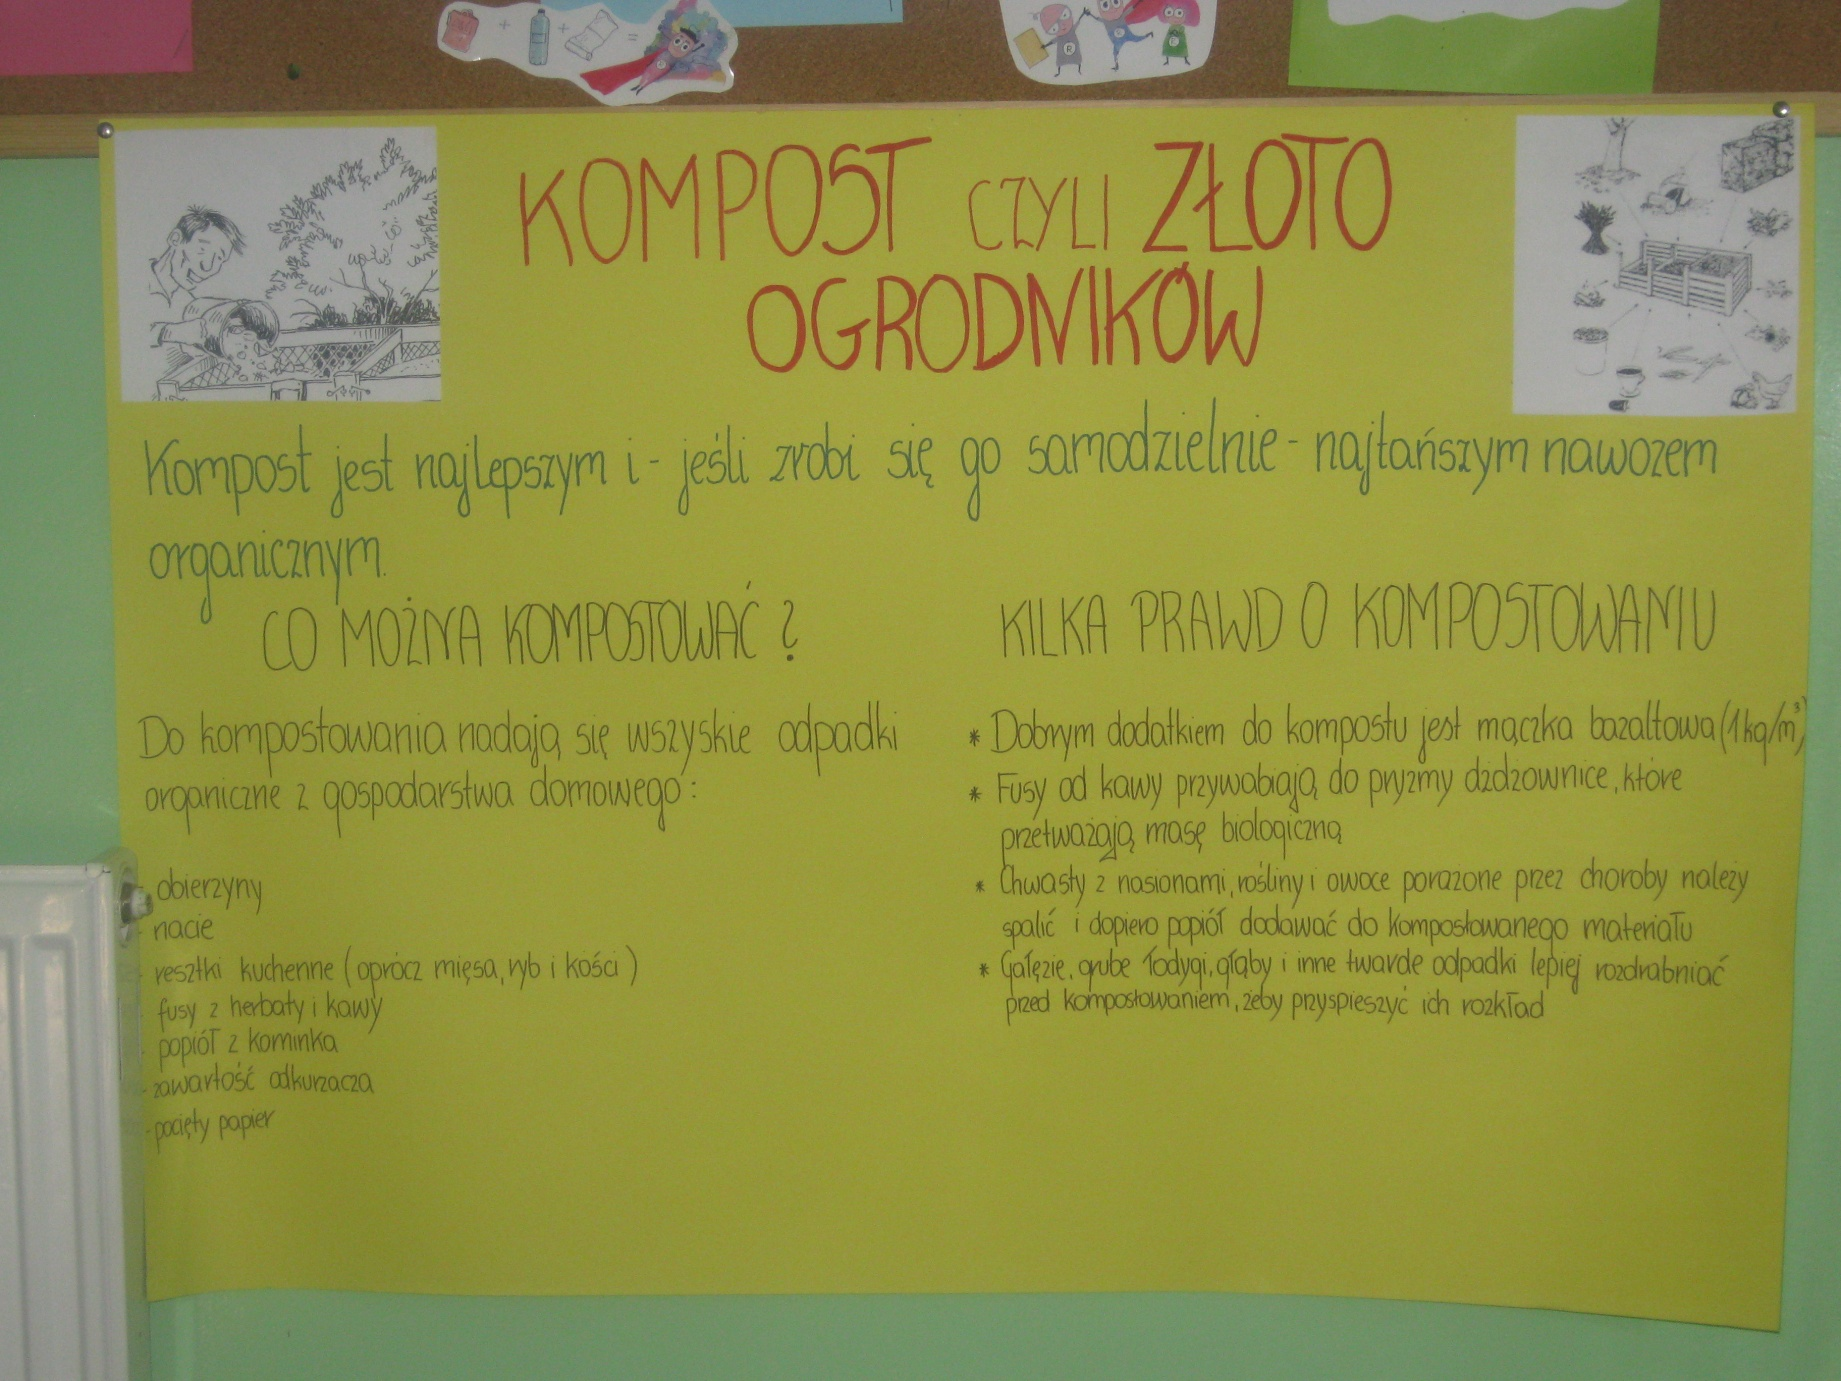 KOMPOST CZYLI ZŁOTO
OGRODNIKÓW
Kompost jest najlepszym i - jeśli zrobi się go samodzielnie - najtańszym nawozem
organicznym.
CO MOŻNA KOMPOSTOWAĆ ?
Do kompostowania nadają się wszyskie odpadki
organiczne z gospodarstwa domowego:
- obierzyny
- nacie
- resztki kuchenne (oprócz mięsa, ryb i kości)
- fusy z herbaty i kawy
- popiół z kominka
- zawartość odkurzacza
- pocięty papier
KILKA PRAWD O KOMPOSTOWANIU
* Dobrym dodatkiem do kompostu jest mączka bazaltowa (1kg/m³)
* Fusy od kawy przywabiają do pryzmy dżdżownice, które
przetważają masę biologiczną
* Chwasty z nasionami, rośliny i owoce porażone przez choroby należy
spalić i dopiero popiół dodawać do kompostowanego materiału
* Gałęzie, grube łodygi, głąby i inne twarde odpadki lepiej rozdrabniać
przed kompostowaniem, żeby przyspieszyć ich rozkład